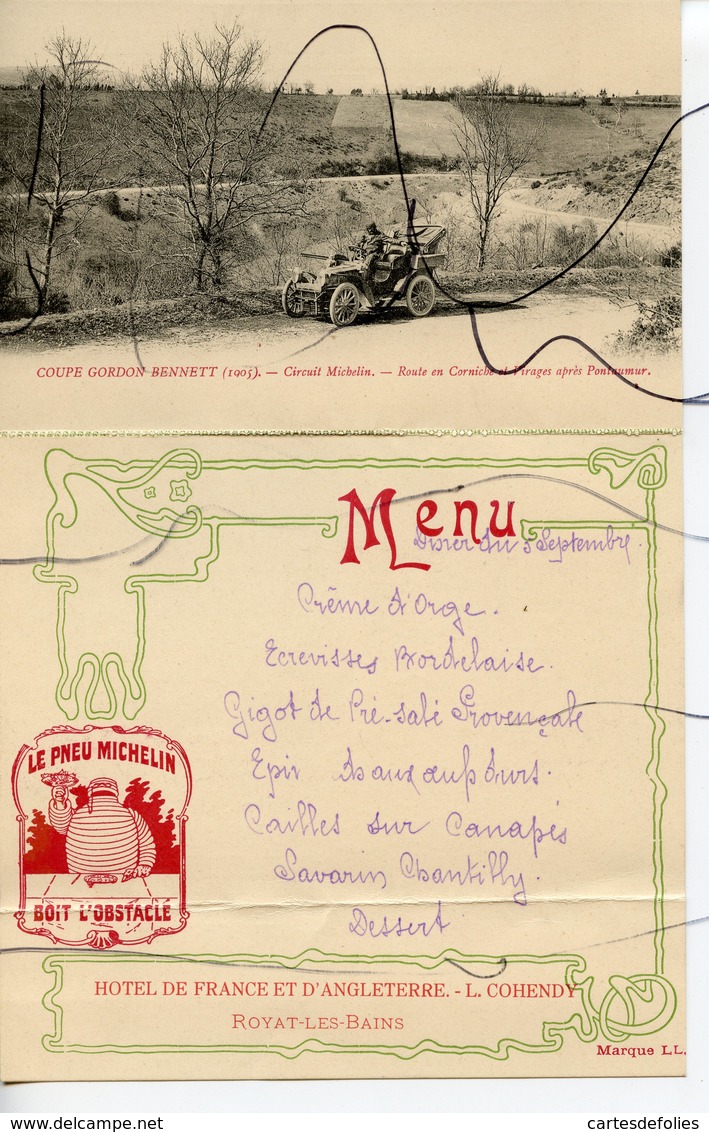 COUPE GORDON BENNETT (1905). — Circuit Michelin. — Route en Corniche et Virages après Pontaumur.
Menu
Diner du 5 Septembre.
Crême d'Orge.
Ecrevisses Bordelaise.
Gigot de Pré-salé Provençale
aux œufs durs.
Cailles sur Canapés
Savarin Chantilly.
Dessert
LE PNEU MICHELIN
BOIT L'OBSTACLE
HOTEL DE FRANCE ET D'ANGLETERRE. - L. COHENDY
ROYAT-LES-BAINS
Marque LL.
delcampe.net
cartesdefolies